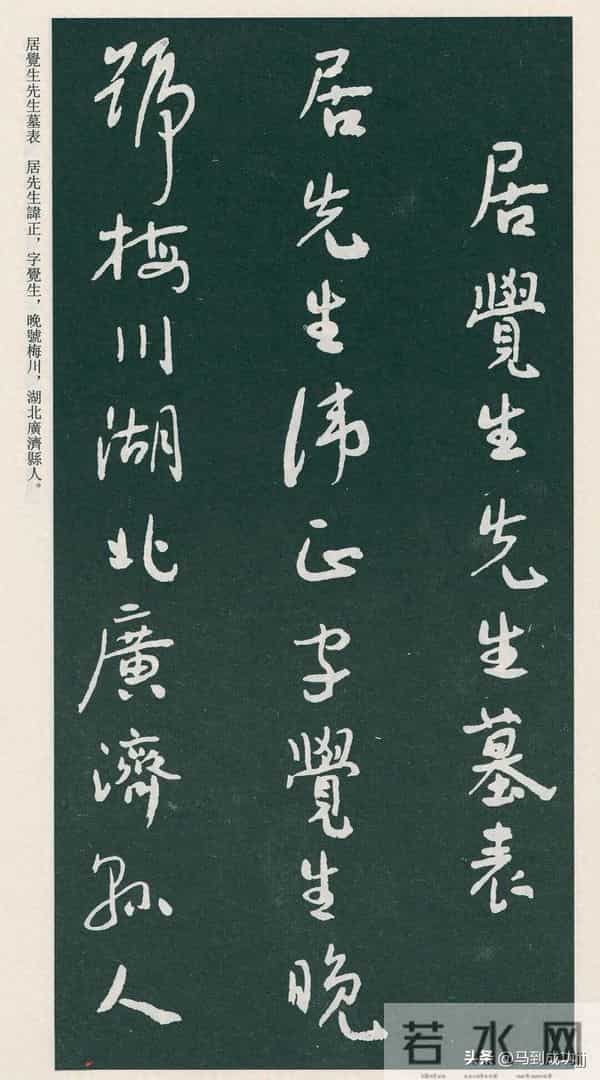 居覺生先生墓表
居先生諱正字覺生晚
號梅川湖北廣濟縣人
居覺生先生墓表　居先生諱正，字覺生，晚號梅川，湖北廣濟縣人。
若水网
头条 @马到成功